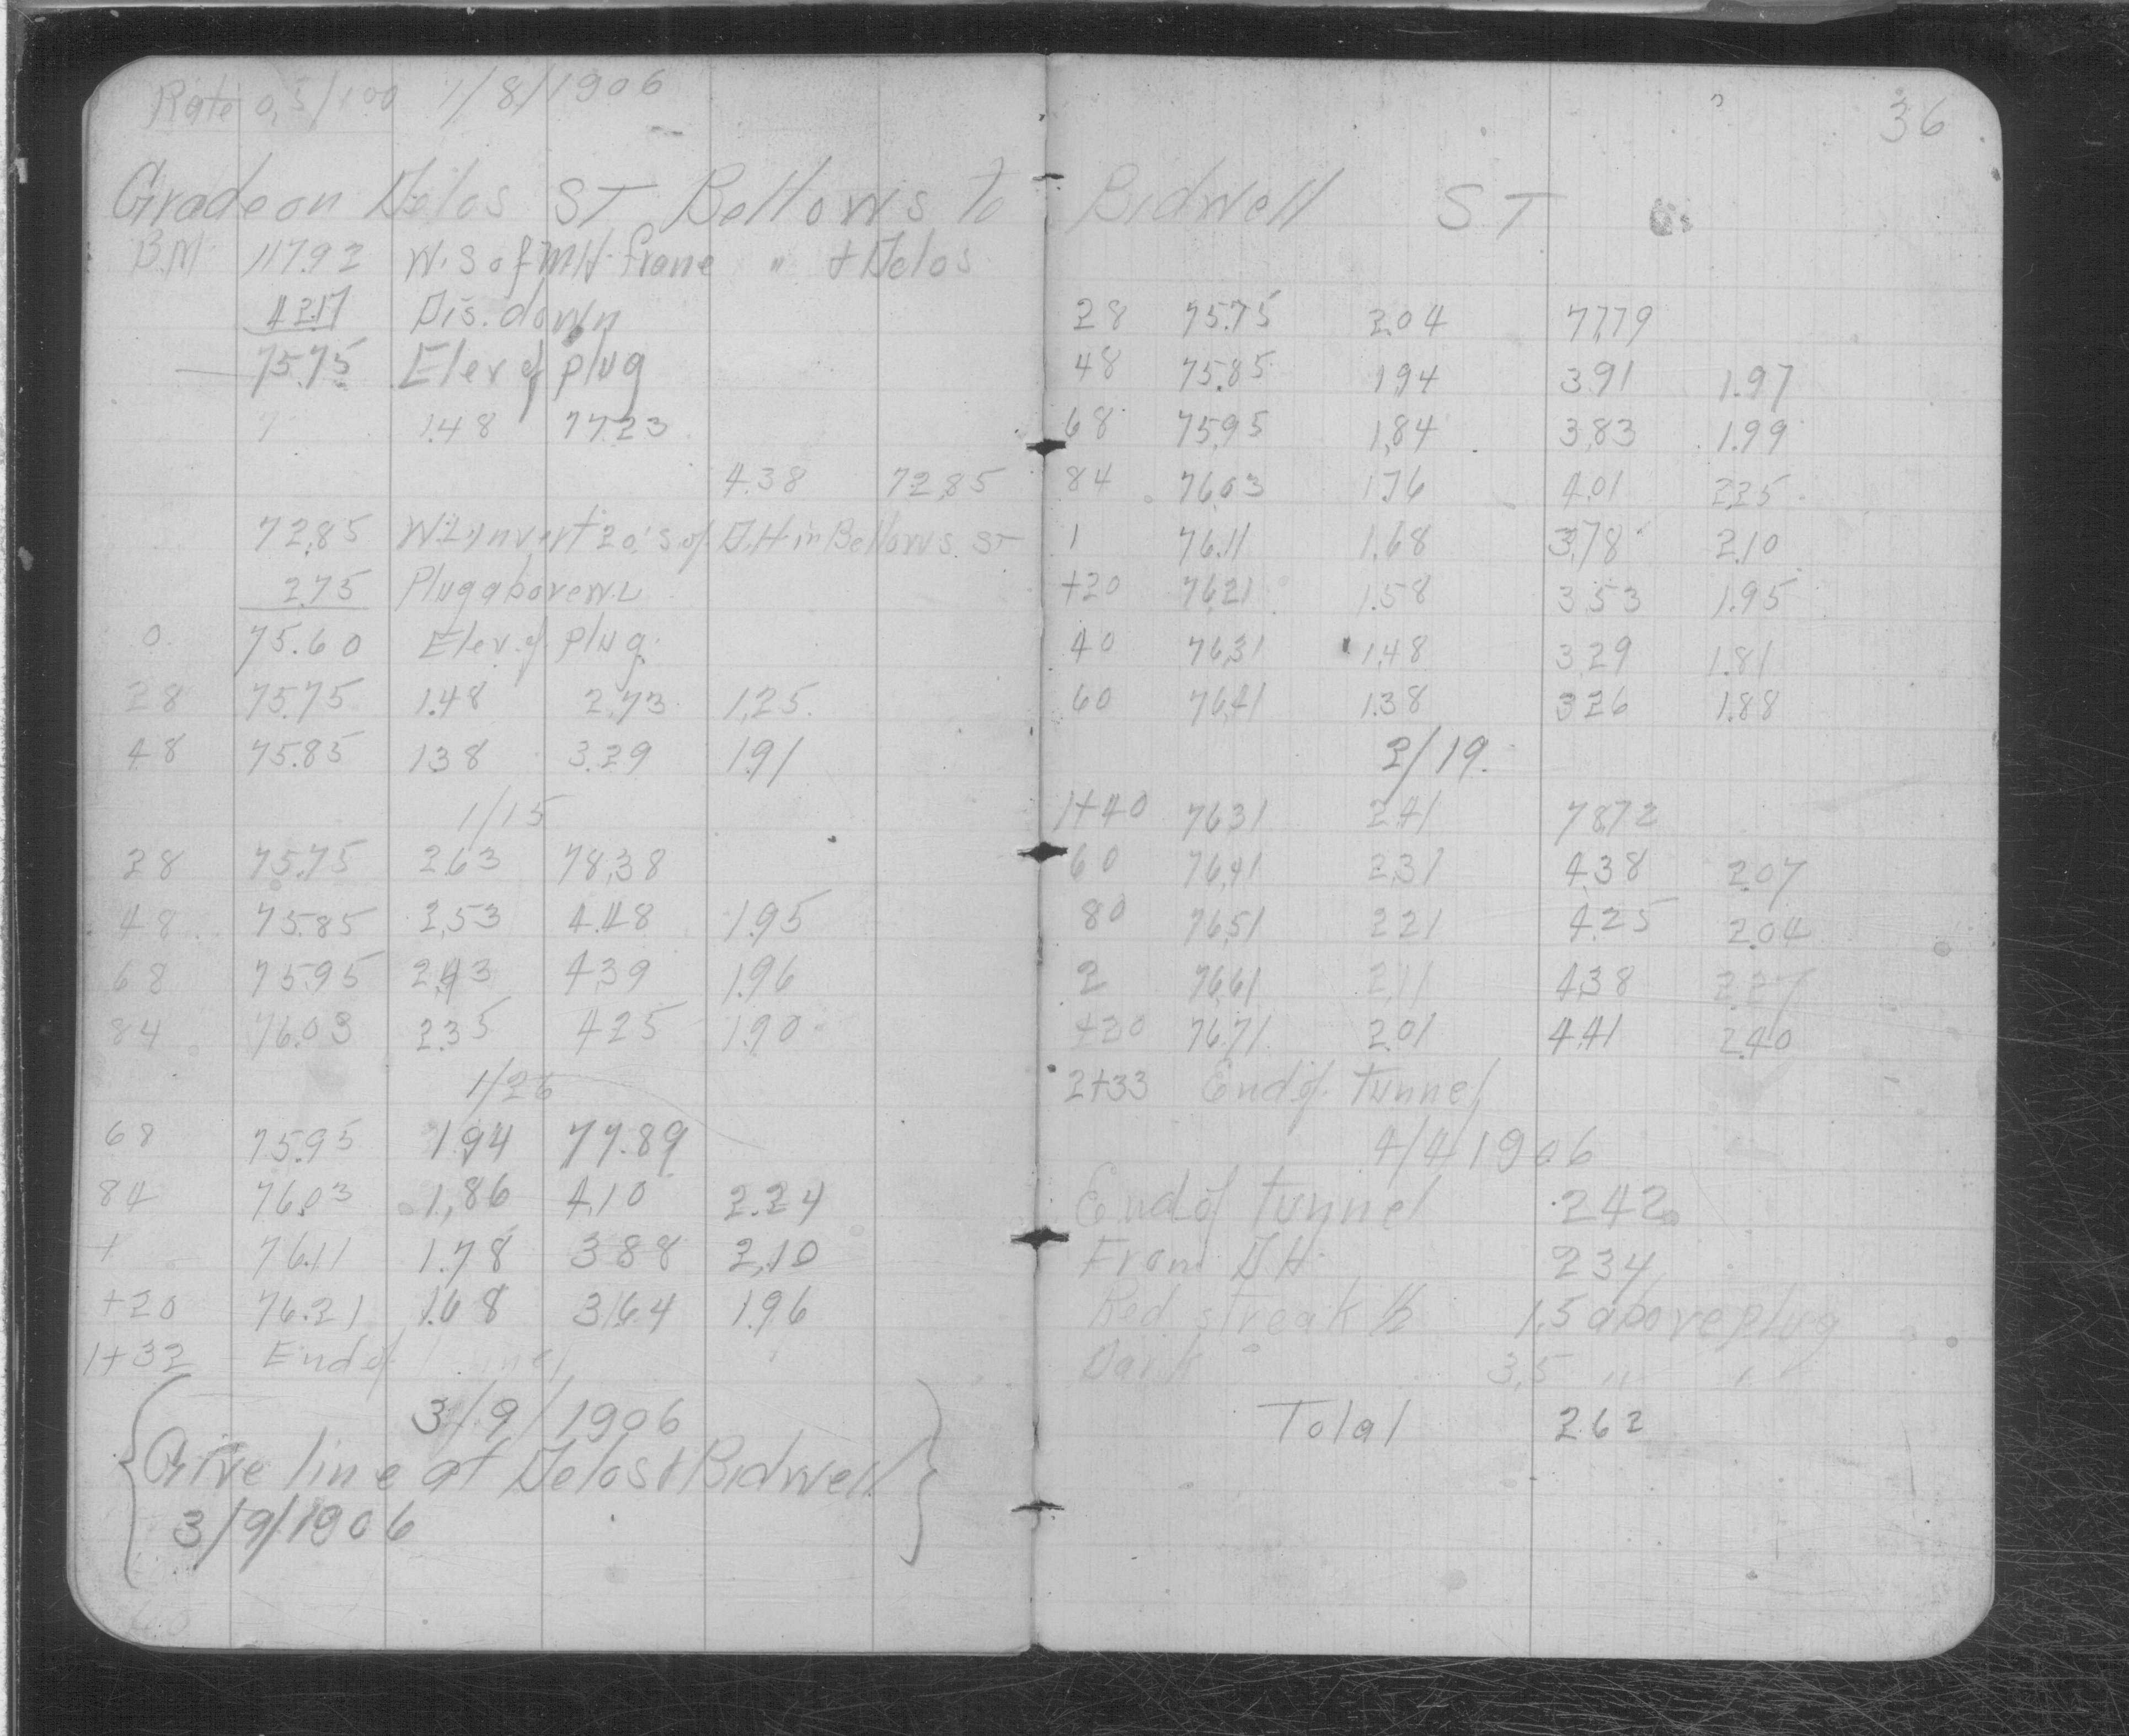 Rate 0.5/100 1/8/1906
Grade on Delos ST Bellows to
B.M. 117.92 W.S of M.H. frame " + Delos
42.17 Dis. down
75.75 Elev of plug
1.48 77.23
4.38 72.85
72.85 W.L. Invert 20' S. of D.H in Bellows ST
2.75 Plug above W.L
0 75.60 Elev. of plug.
28 75.75 1.48 2.73 1.25
48 75.85 1.38 3.29 1.91
1/15
28 75.75 2.63 78.38
48 75.85 2.53 4.48 1.95
68 75.95 2.43 4.39 1.96
84 76.03 2.35 4.25 1.90
1/26
68 75.95 1.94 77.89
84 76.03 1.86 4.10 2.24
+ 76.11 1.78 3.88 2.10
+20 76.21 1.68 3.64 1.96
1+32 End of
3/9/1906
Give line at Delos + Bidwell
3/9/1906
36
Bidwell ST
28 75.75 2.04 77.79
48 75.85 1.94 3.91 1.97
68 75.95 1.84 3.83 1.99
84 76.03 1.76 4.01 2.25
1 76.11 1.68 3.78 2.10
+20 76.21 1.58 3.53 1.95
40 76.31 1.48 3.29 1.81
60 76.41 1.38 3.26 1.88
2/19.
1+40 76.31 2.41 78.72
60 76.41 2.31 4.38 2.07
80 76.51 2.21 4.25 2.04
2 76.61 2.11 4.38 2.27
+20 76.71 2.01 4.41 2.40
2+33 End of tunnel
4/4/1906
End of tunnel 242
From D H 234
Red streak 1/2 1.5 above plug
Dark 3.5 " "
Total 262